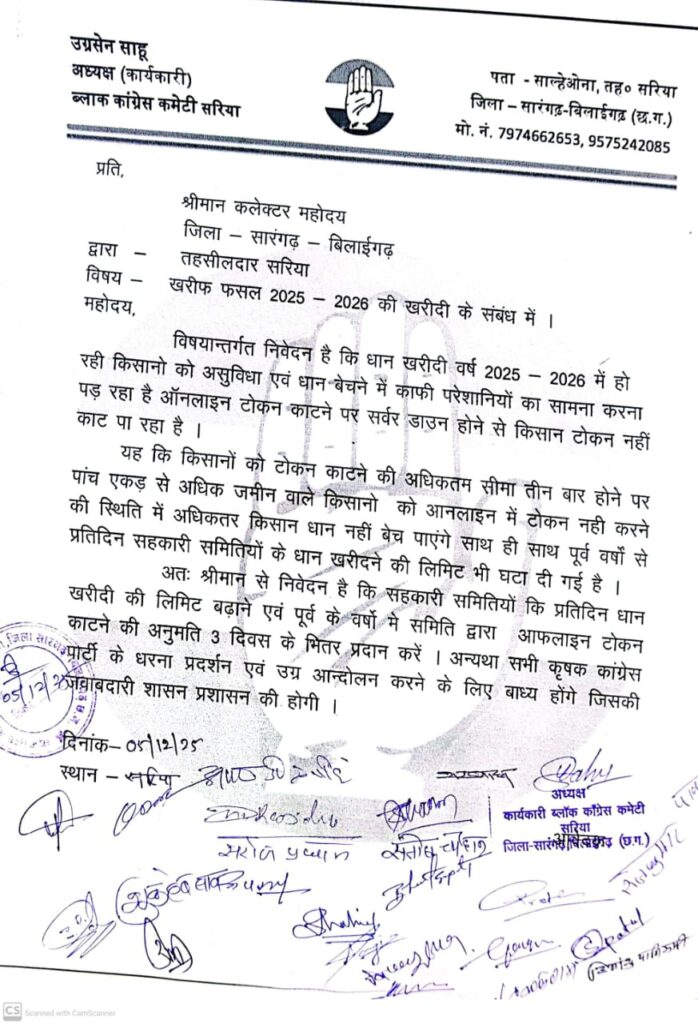 उग्रसेन साहू
अध्यक्ष (कार्यकारी)
ब्लाक कांग्रेस कमेटी सरिया
पता - साल्हेओना, तह० सरिया
जिला – सारंगढ़-बिलाईगढ़ (छ.ग.)
मो. नं. 7974662653, 9575242085
प्रति,
श्रीमान कलेक्टर महोदय
जिला – सारंगढ़ – बिलाईगढ़
द्वारा – तहसीलदार सरिया
विषय – खरीफ फसल 2025 – 2026 की खरीदी के संबंध में ।
महोदय,
विषयान्तर्गत निवेदन है कि धान खरीदी वर्ष 2025 – 2026 में हो
रही किसानो को असुविधा एवं धान बेचने में काफी परेशानियों का सामना करना
पड़ रहा है ऑनलाइन टोकन काटने पर सर्वर डाउन होने से किसान टोकन नहीं
काट पा रहा है ।
यह कि किसानों को टोकन काटने की अधिकतम सीमा तीन बार होने पर
पांच एकड़ से अधिक जमीन वाले किसानो को आनलाइन में टोकन नही करने
की स्थिति में अधिकतर किसान धान नहीं बेच पाएंगे साथ ही साथ पूर्व वर्षो से
प्रतिदिन सहकारी समितियों के धान खरीदने की लिमिट भी घटा दी गई है ।
अतः श्रीमान से निवेदन है कि सहकारी समितियों कि प्रतिदिन धान
खरीदी की लिमिट बढ़ाने एवं पूर्व के वर्षो मे समिति द्वारा आफलाइन टोकन
काटने की अनुमति 3 दिवस के भितर प्रदान करें । अन्यथा सभी कृषक कांग्रेस
पार्टी के धरना प्रदर्शन एवं उग्र आन्दोलन करने के लिए बाध्य होंगे जिसकी
जवाबदारी शासन प्रशासन की होगी ।
05/12/25
दिनांक– 05/12/25
स्थान – सरिया
अध्यक्ष
कार्यकारी ब्लॉक काँग्रेस कमेटी
सरिया
जिला-सारंगढ़ बिलाईगढ़ (छ.ग.)
सरोज प्रधान
संतोष चौहान
CS Scanned with CamScanner